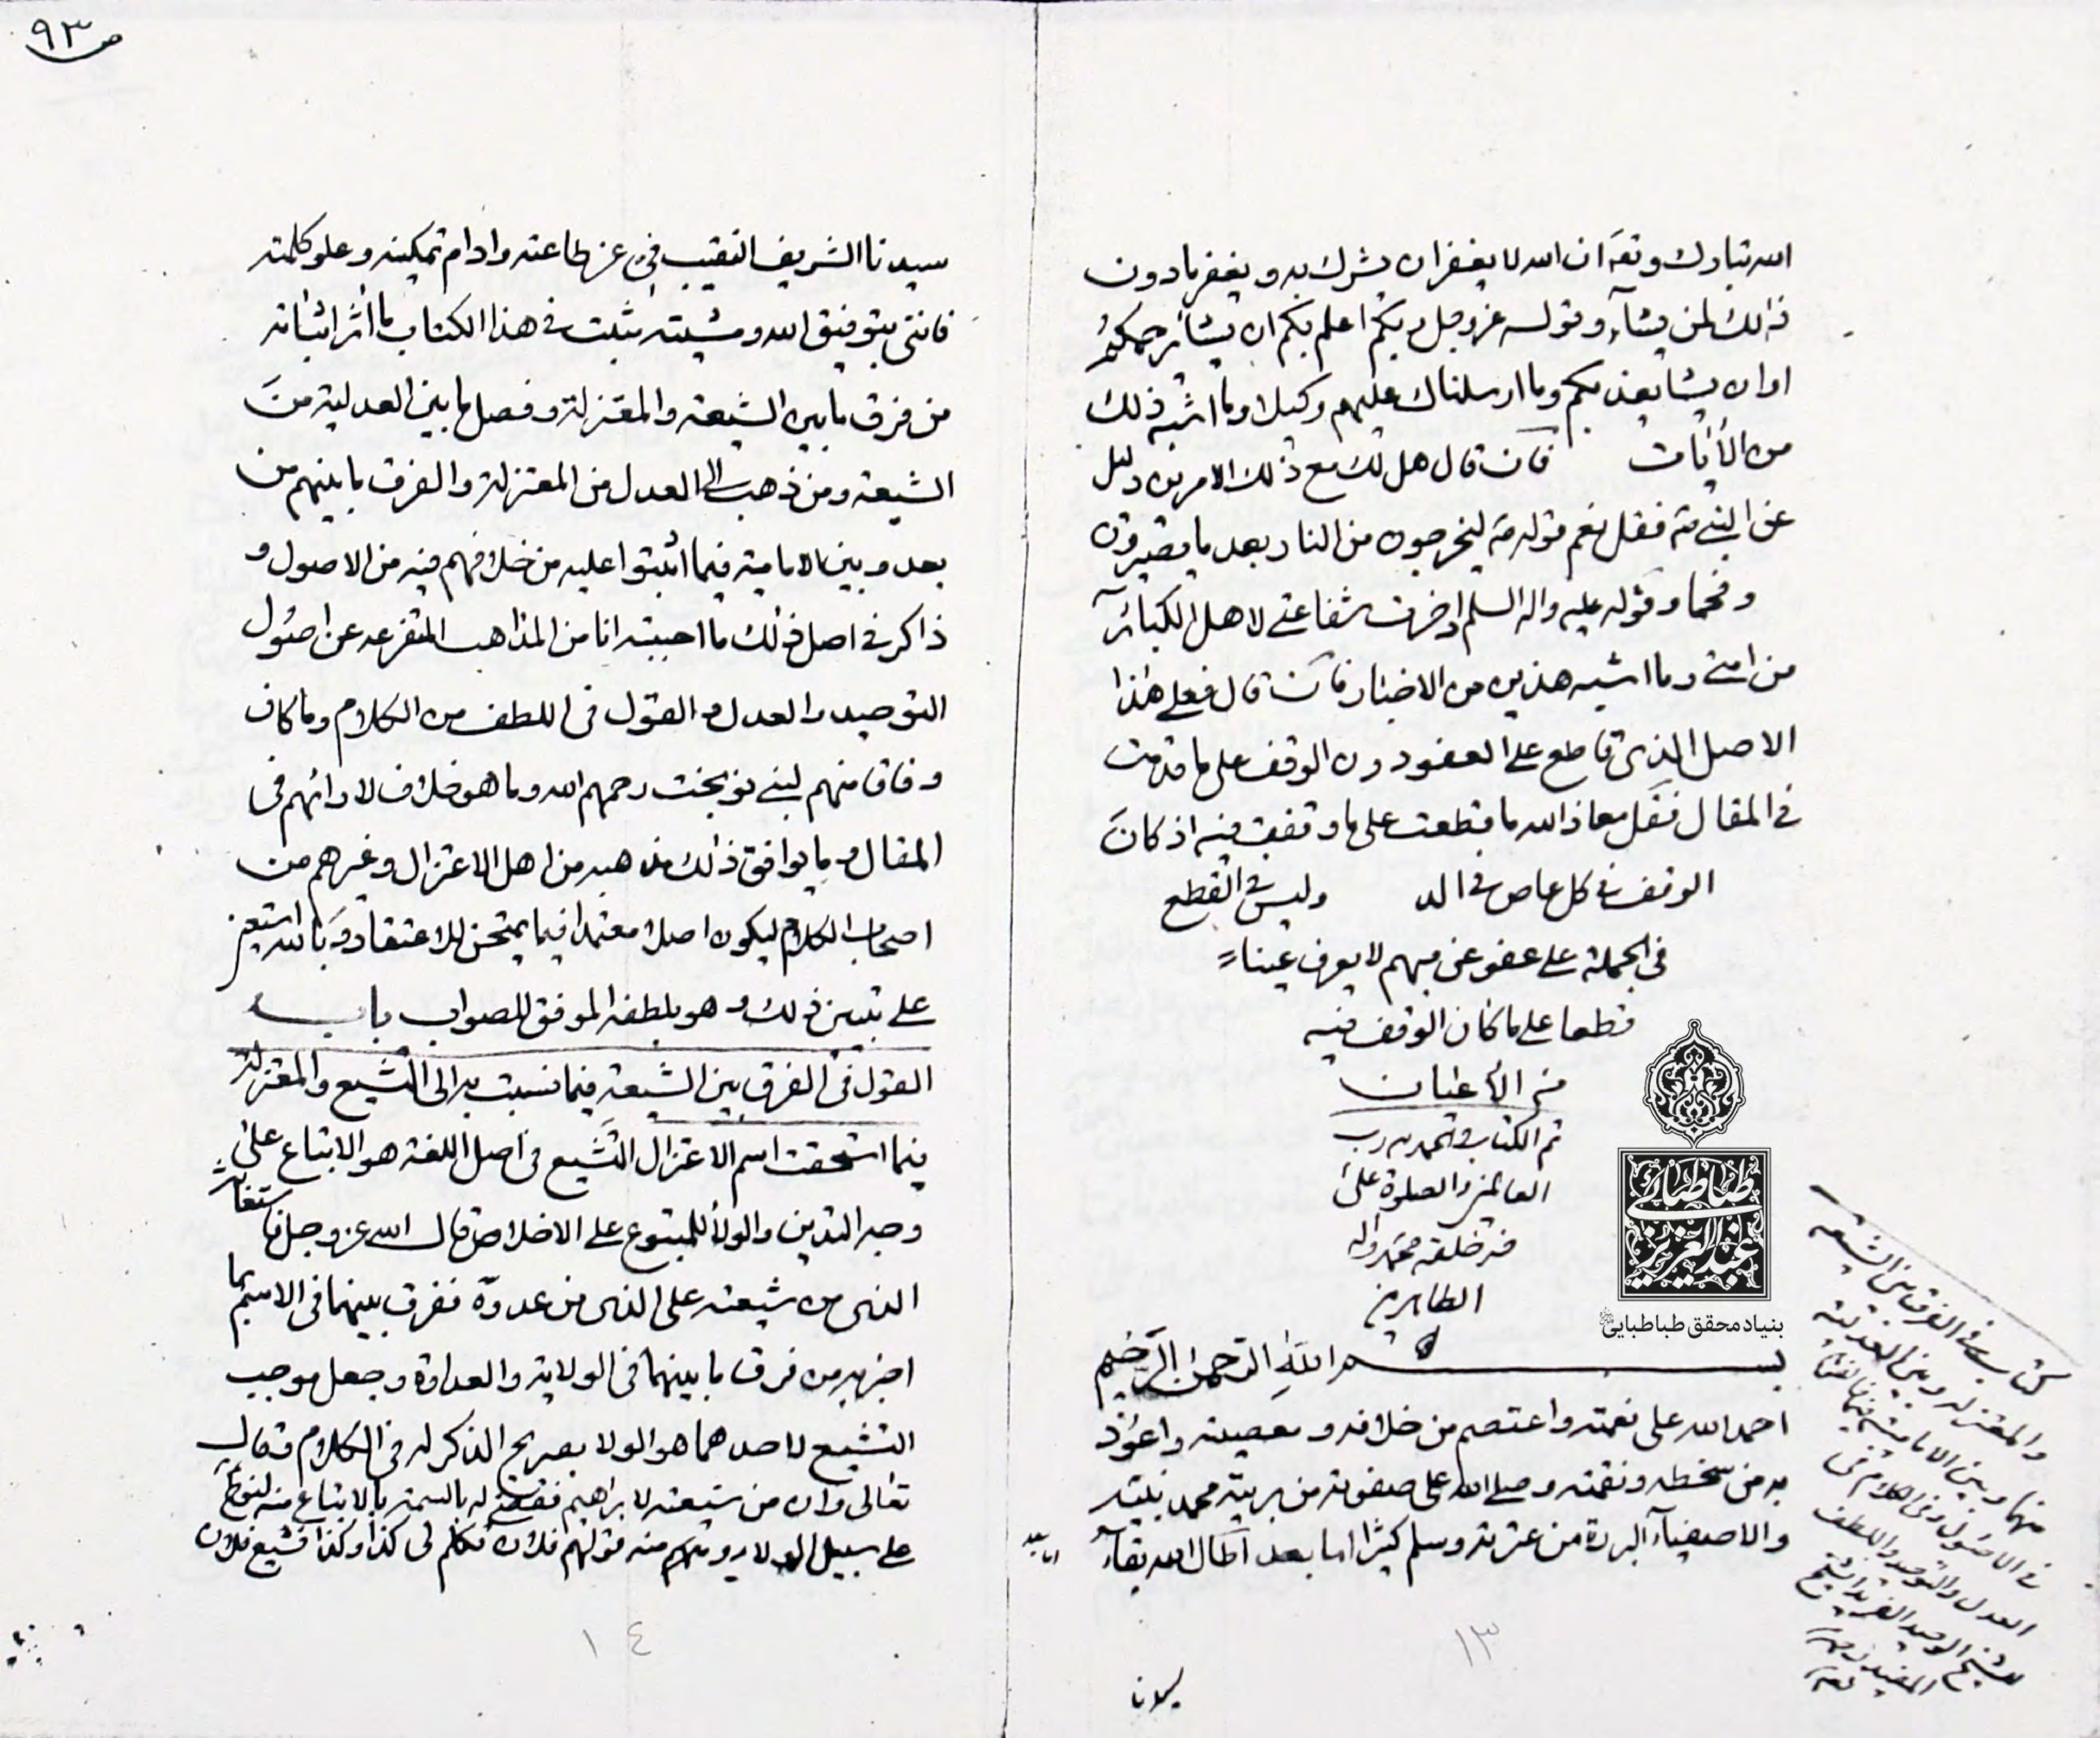 ص ٩٣
الله تبارك وتعه ان الله لا يغفر ان يشرك به ويغفر ما دون
ذالك لمن يشاء وقوله عز وجل ربكم اعلم بكم ان يشا يرحمكم
او ان يشا يعذبكم وما ارسلناك عليهم وكيلا وما اشبه ذلك
من الأيات فان قال هل لك مع ذلك الامرين دليل
عن النبي صه فقل نعم قوله صه ليخرجون من النار بعد ما يصيرون
وفحما وقوله عليه واله السلم ادخرت شفاعتي لاهل الكبائر
من امتي وما اشبه هذين من الاخبار فان قال فعلى هذا
الاصل الذي قاطع على العفو دون الوقف على ما قدمت
في المقال فقل معاذ الله ما قطعت على ما وقفت فيه اذ كان
الوقف في كل عاص في الد وليس في القطع
في الجملة على عفو عن مبهم لا يعرف عينا
قطعا على ما كان الوقف فيه
من الأعيان
تم الكتاب والحمد لله رب
العالمين والصلوة على
خير خلقه محمد واله
الطاهرين
بسم الله الرحمن الرحيم
احمد الله على نعمته واعتصم من خلافه ومعصيته واعوذ
به من سخطه ونقمته وصلى الله على صفوته من بريته محمد نبيه
والاصفياء البررة من عترته وسلم كثيرا اما بعد اطال الله بقاء
اما بعد
١٣
كتاب في الفرق بين الشيعة
والمعتزلة وبين العدلية
منها وبين الامامية فيما
في الاصول وفي الكلام في
العدل والتوحيد واللطف
للشيخ الوحيد الفريد الشيخ
المفيد
طباطبائي
عبد العزيز
بنیاد محقق طباطبایی
سيدنا الشريف النقيب في عز طاعته وادام تمكينه وعلو كلمته
فانني بتوفيق الله ومشيته مثبت في هذا الكتاب ما اثر اثباته
من فرق ما بين الشيعة والمعتزلة وفصل ما بين العدلية من
الشيعة ومن ذهب الى العدل من المعتزلة والفرق ما بينهم من
بعد وبين الامامية فيما اتفقوا عليه من خلافهم فيه من الاصول و
ذاكر في اصل ذلك ما اجبته انا من المذاهب المتفرعه عن اصول
التوحيد والعدل و القول في اللطف من الكلام وما كان
وفاق منهم لبني نوبخت رحمهم الله وما هو خلاف لارائهم في
المقال و ما يوافق ذالك مذهبه من اهل الاعتزال وغيرهم من
اصحاب الكلام ليكون اصلا معتمدا فيما يمتحن للاعتقاد وبالله استعين
على تبيين ذلك وهو بلطفه الموفق للصواب باب
القول في الفرق بين الشيعة فيما نسبت به الى التشيع والمعتزلة
فيما استحقت اسم الاعتزال التشيع في اصل اللغة هو الاتباع على
وجه التدين والولاء للمتبوع على الاخلاص قال الله عز وجل فاستغاثه
الذي من شيعته على الذي من عدوه ففرق بينهما في الاسم بما
اخبر به من فرق ما بينهما في الولاية والعداوة وجعل موجب
التشيع لاحدهما هو الولا بصريح الذكر له في الكلام وقال
تعالى وان من شيعته لابراهيم فقضى له بالسمة بالاتباع منه لنوح
على سبيل الولاء ومنه قولهم فلان تكلم في كذا وكذا فشيع فلان
١٤